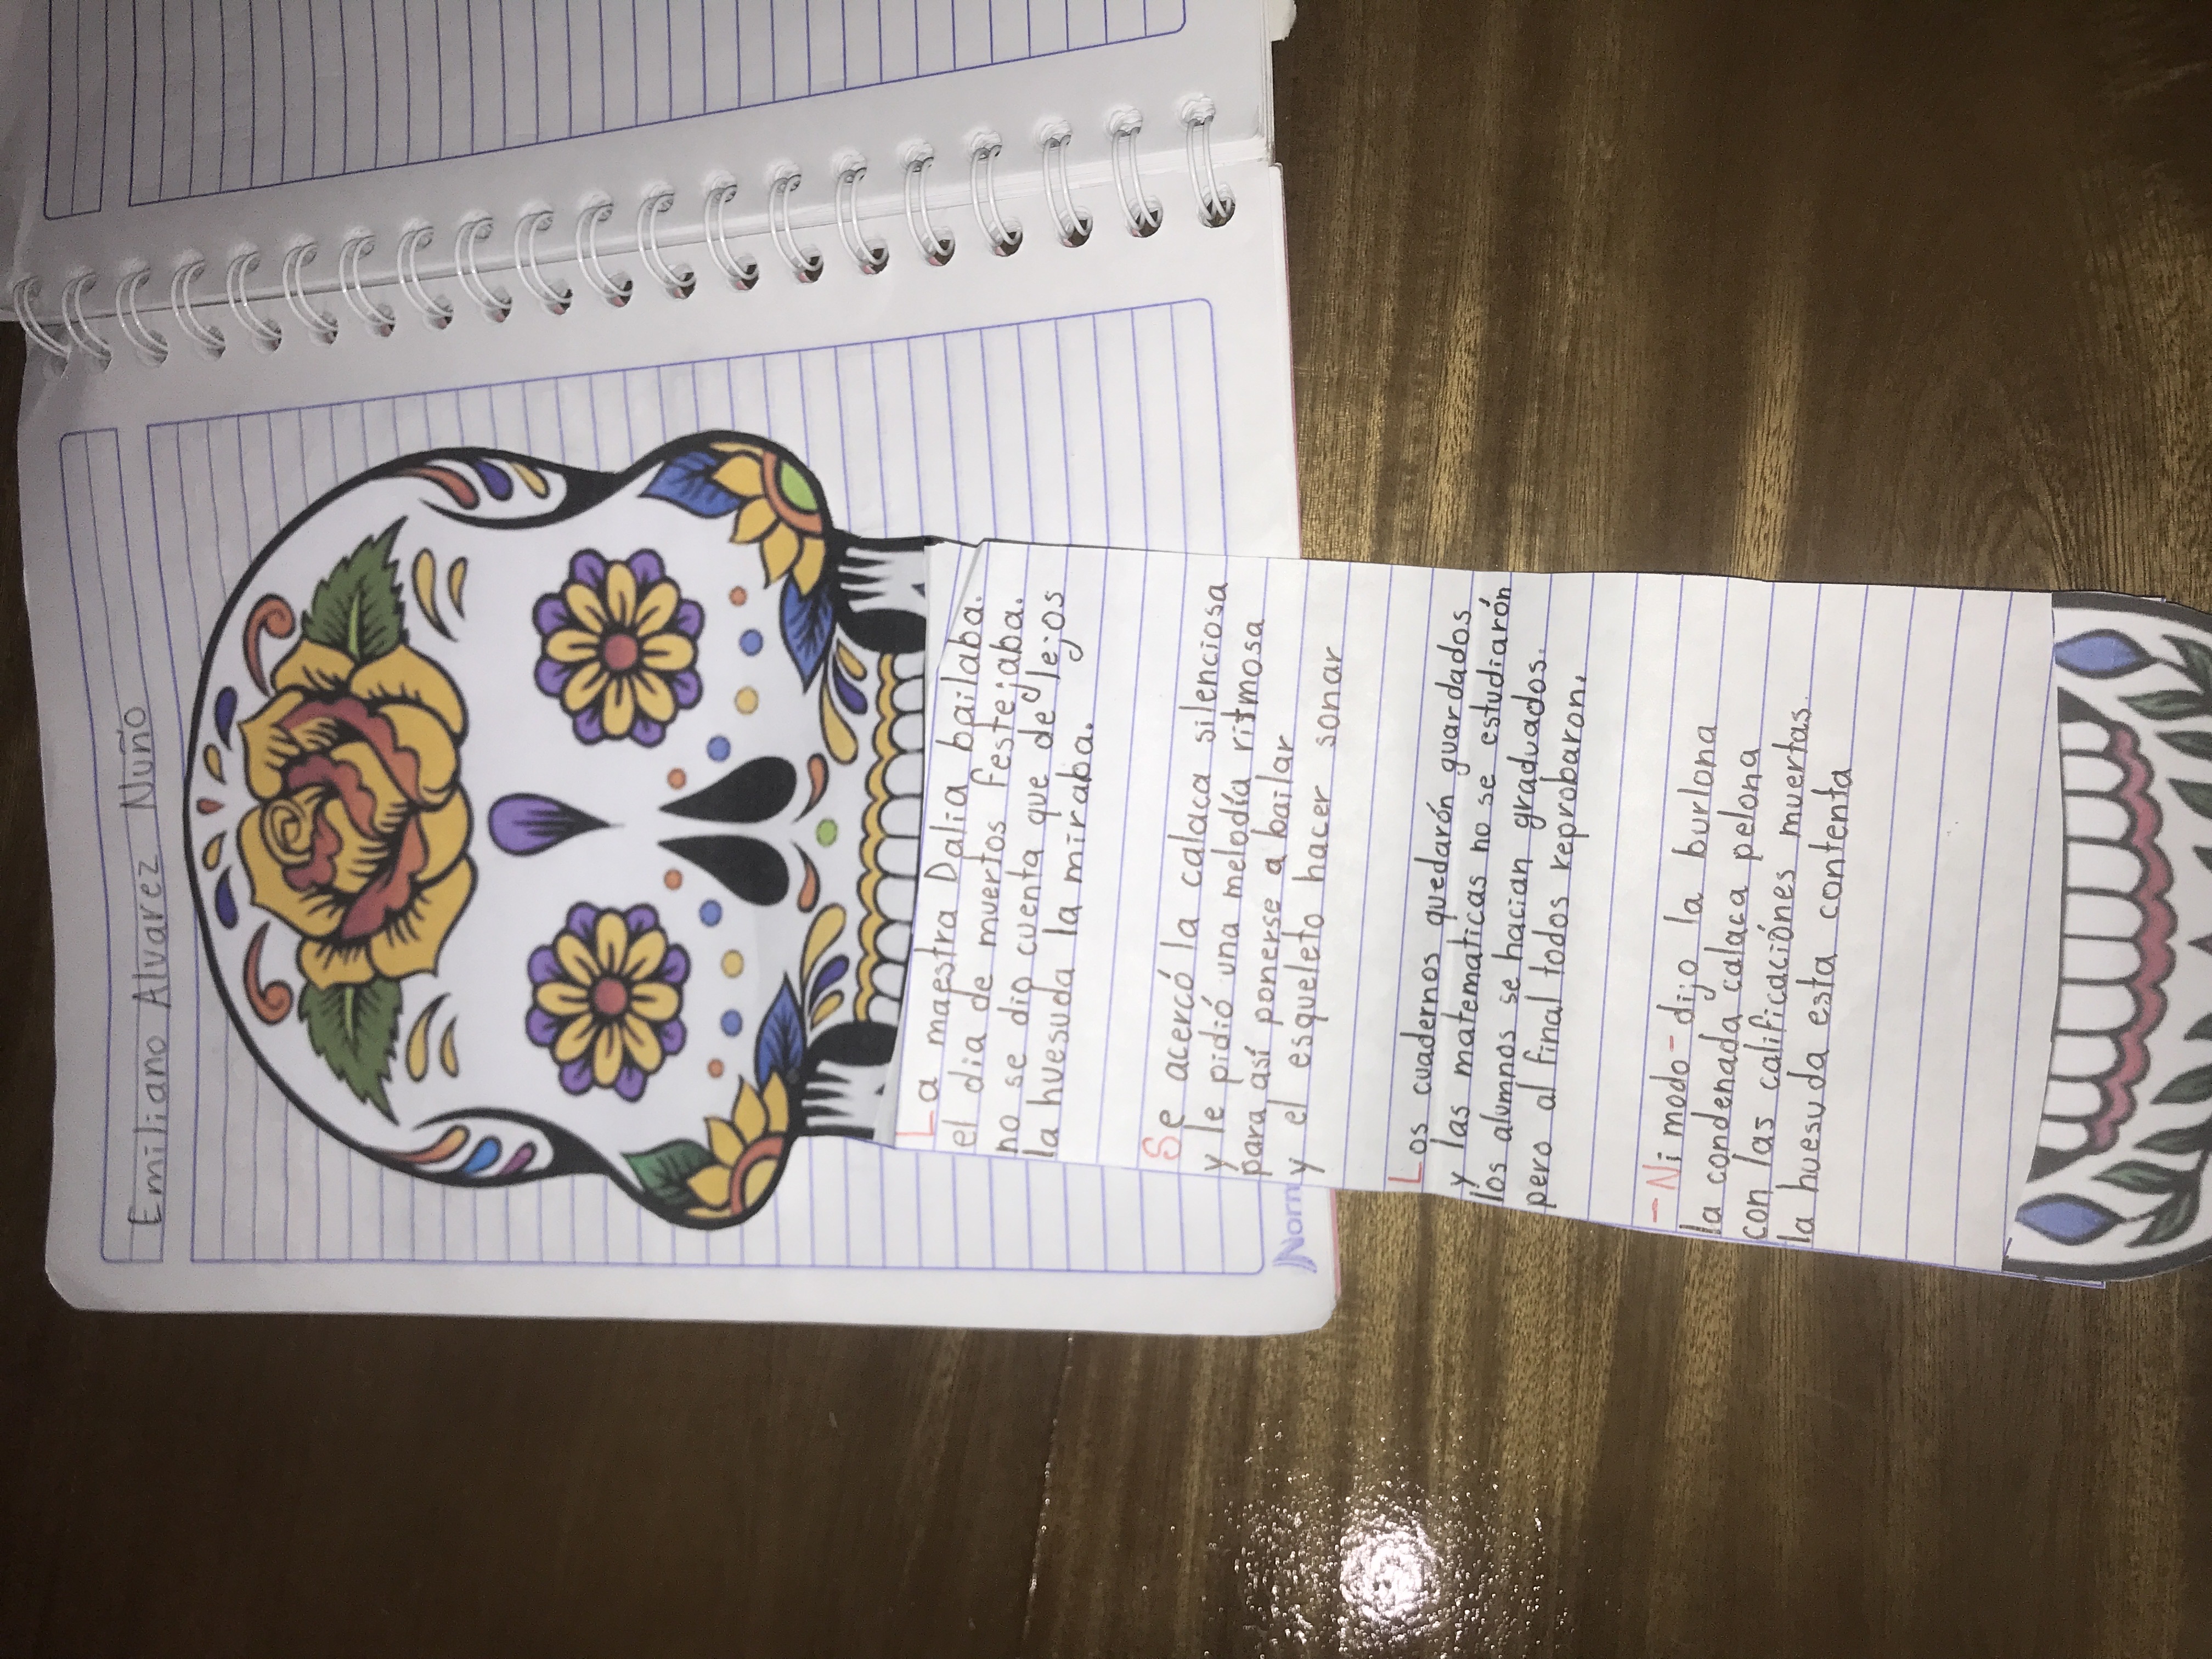 Emiliano Alvarez Nuño
La maestra Dalia bailaba.
el dia de muertos festejaba.
no se dio cuenta que de lejos
la huesuda la miraba.
Se acercó la calaca silenciosa
y le pidió una melodía ritmosa
para así ponerse a bailar
y el esqueleto hacer sonar
Los cuadernos quedarón guardados
y las matematicas no se estudiarón
los alumnos se hacian graduados.
pero al final todos reprobaron.
- Ni modo - dijo la burlona
la condenada calaca pelona
con las calificaciónes muertas.
la huesuda esta contenta
Norm